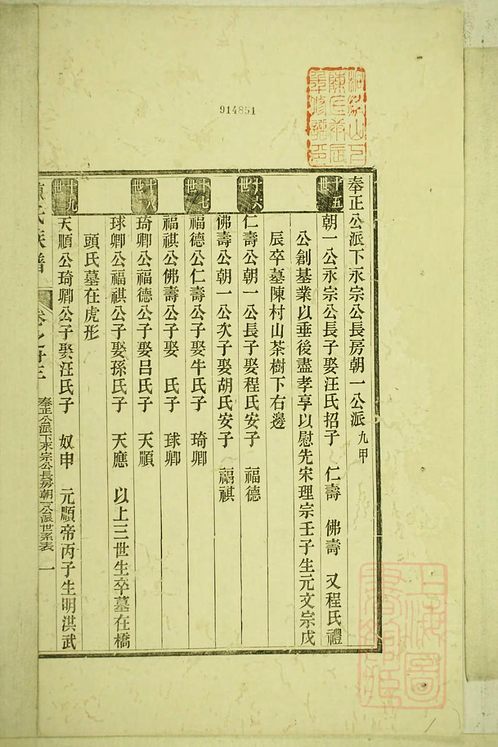 914851
奉正公派下永宗公長房朝一公派 九甲
十五世
朝一公永宗公長子娶汪氏招子 仁壽 佛壽 又程氏禮
公創基業以垂後盡孝享以慰先宋理宗壬子生元文宗戊
辰卒墓陳村山茶樹下右邊
十六世
仁壽公朝一公長子娶程氏安子 福德
佛壽公朝一公次子娶胡氏安子 福祺
十七世
福德公仁壽公子娶牛氏子 琦卿
福祺公佛壽公子娶 氏子 球卿
十八世
琦卿公福德公子娶呂氏子 天順
球卿公福祺公子娶孫氏子 天應 以上三世生卒墓在橋
頭氏墓在虎形
十九世
天順公琦卿公子娶汪氏子 奴申 元順帝丙子生明洪武
氏族譜
奉正公派下永宗公長房朝一公派世系表 一